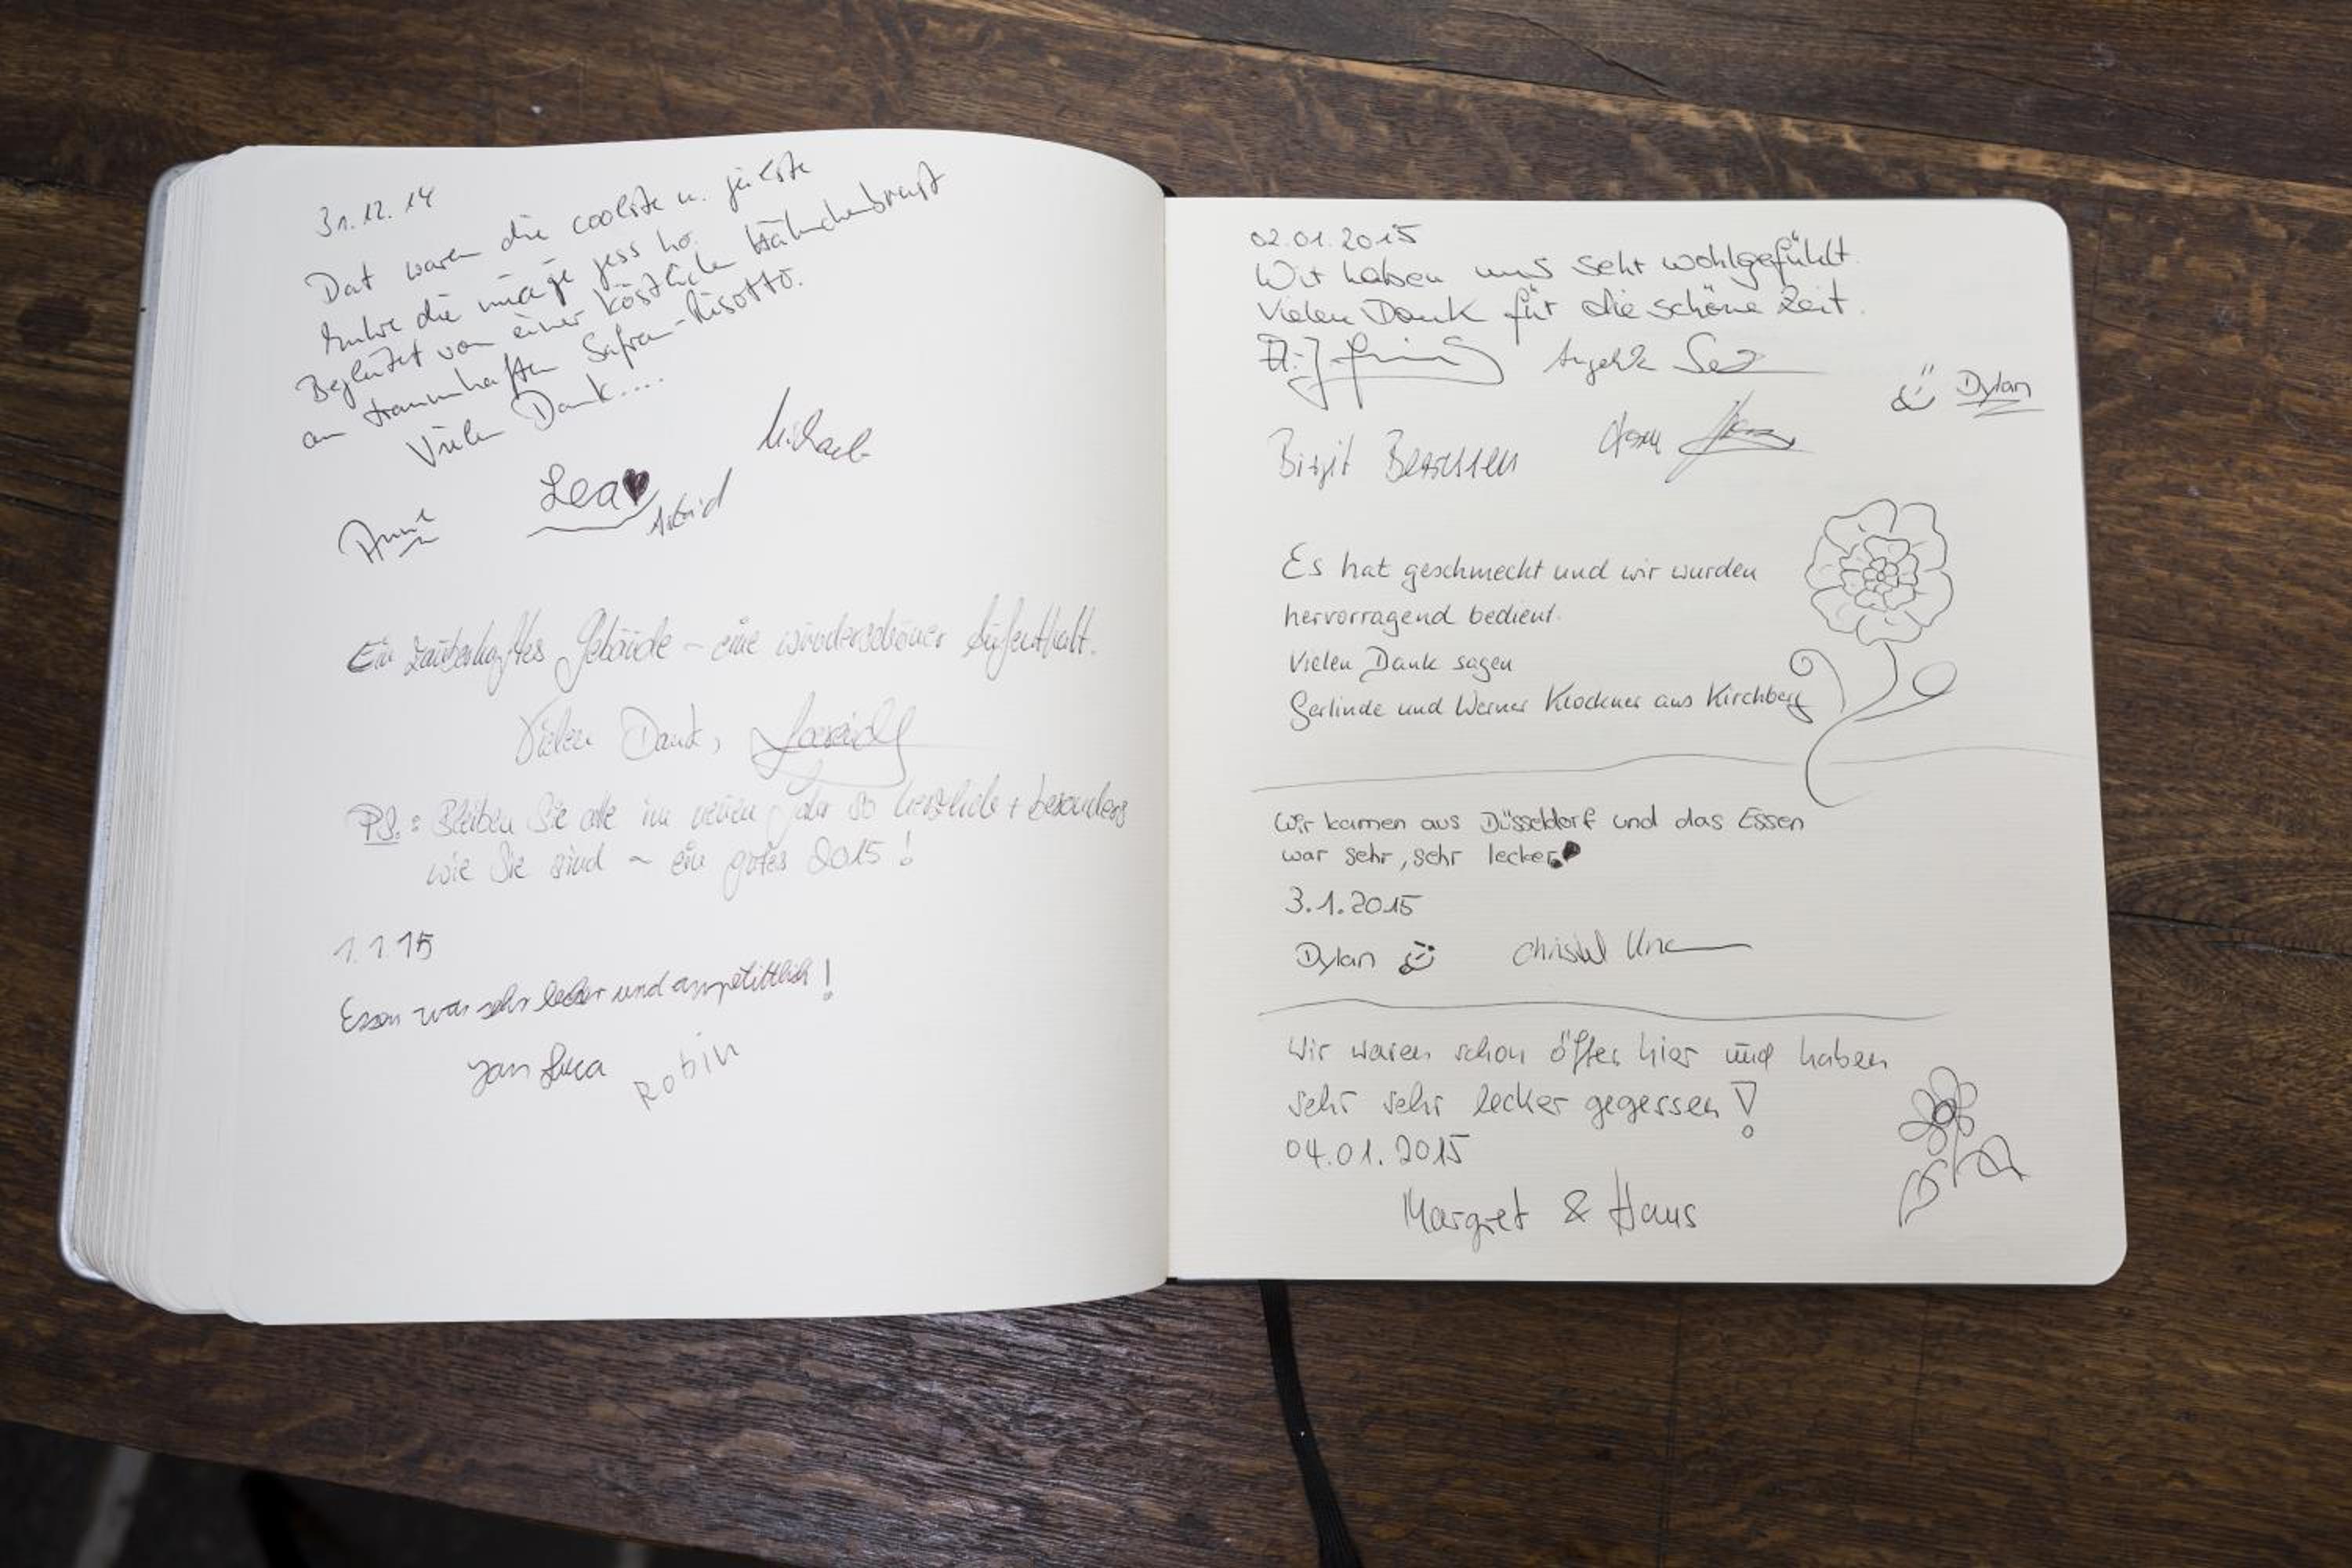 31.12.14
Dat waren die coolste u.
die
Begleitet von einer köstlichen Hähnchenbrust
an traumhaften Safran-Risotto.
Vielen Dank....
Michael
Lea
Astrid
Anne
Ein zauberhaftes Gebäude – eine wunderschöner Aufenthalt.
Vielen Dank,
PS.: Bleiben Sie alle im neuen Jahr so herzlich + besonders
wie Sie sind ~ ein gutes 2015!
1.1.15
Essen war sehr lecker und appetittlich!
Jan Luca
Robin
02.01.2015
Wir haben uns sehr wohlgefühlt.
Vielen Dank für die schöne Zeit.
Angelika
Dylan
Birgit
Es hat geschmeckt und wir wurden
hervorragend bedient.
Vielen Dank sagen
Gerlinde und Werner Klockner aus Kirchberg
Wir kamen aus Düsseldorf und das Essen
war sehr, sehr lecker
3.1.2015
Dylan Christel
Wir waren schon öfter hier und haben
sehr sehr lecker gegessen!
04.01.2015
Margret & Hans